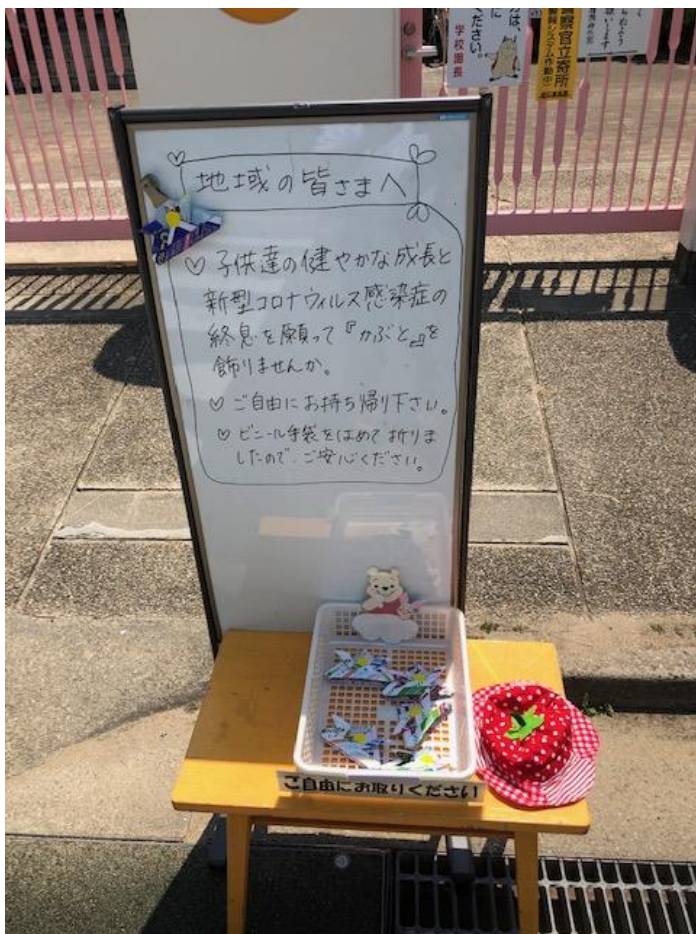 方は
に
ください。
学校園長
警察官立寄所
警報システム作動中
地域の皆さまへ
♡ 子供達の健やかな成長と
新型コロナウィルス感染症の
終息を願って『かぶと』を
飾りませんか。
♡ ご自由にお持ち帰り下さい。
♡ ビニール手袋をはめて折りま
したので、ご安心ください。
ご自由にお取りください